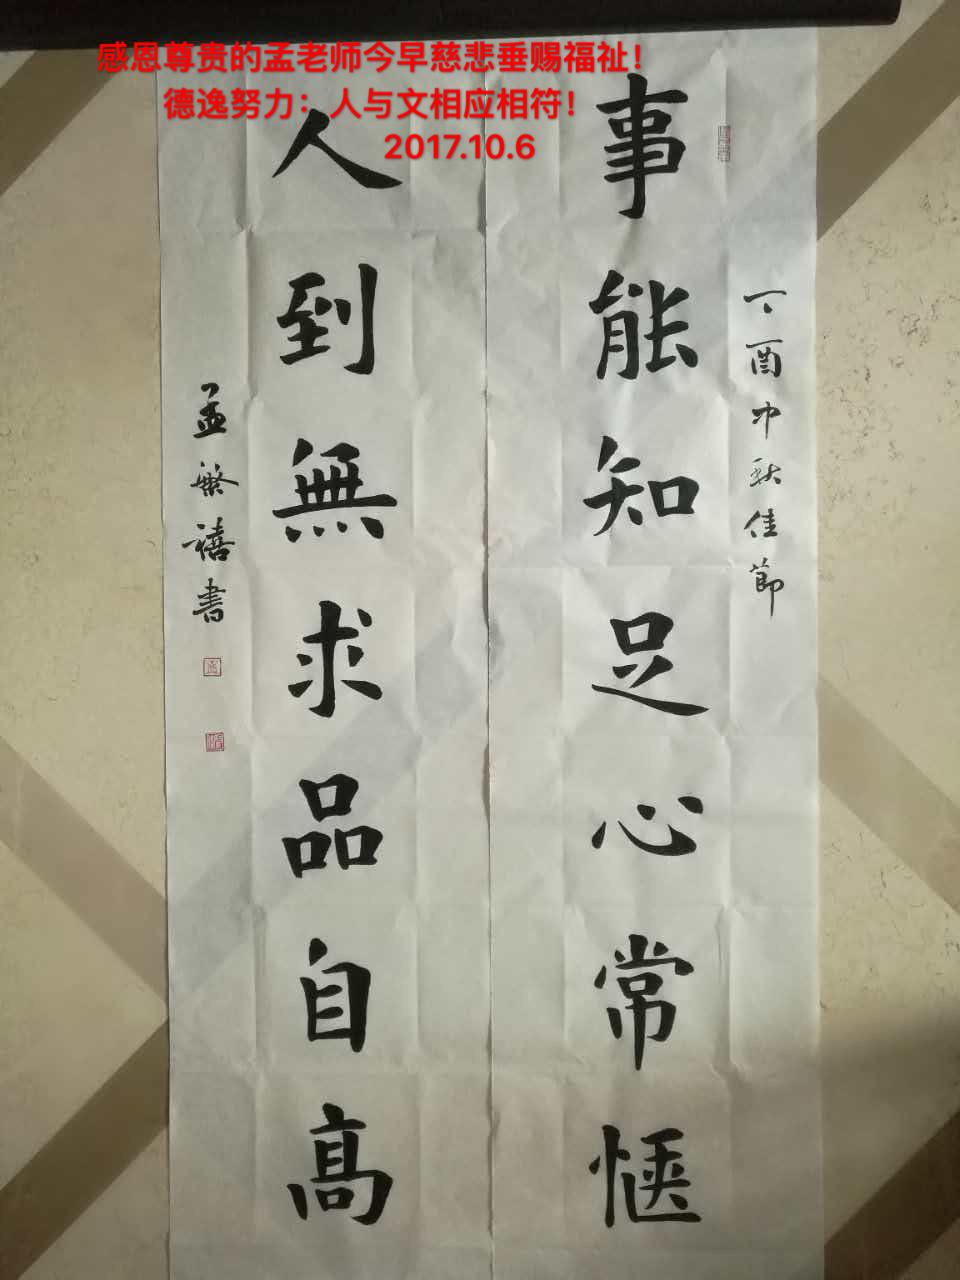 感恩尊贵的孟老师今早慈悲垂赐福祉！
德逸努力：人与文相应相符！
2017.10.6
丁酉中秋佳節
事能知足心常惬
人到無求品自高
孟繁禧書